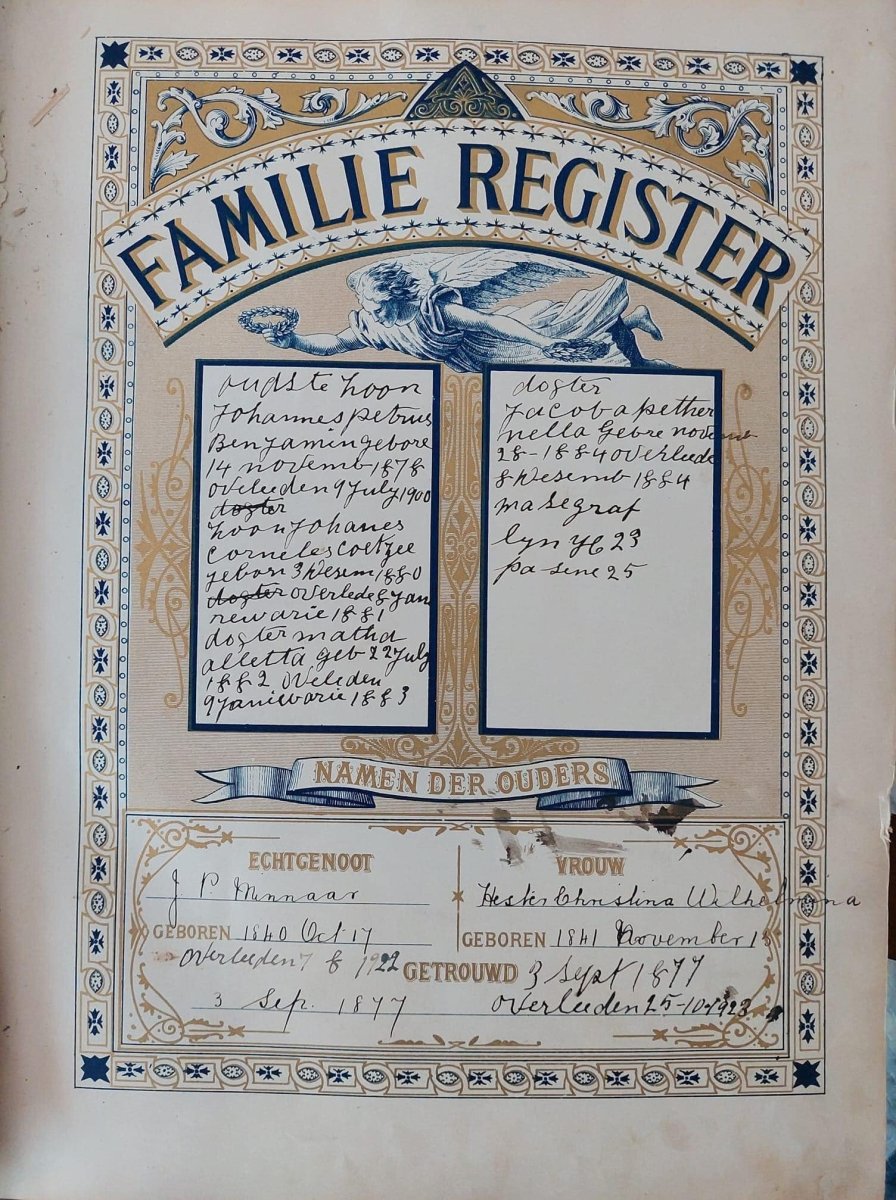 FAMILIE REGISTER
oudste Zoon
Johannes petrus
Benjamin gebore
14 novemb 1878
oveleeden 9 July 1900
dogter
Zoon Johanes
Corneles Coetzee
geborn 3 Desem 1880
dogter overlede 8 Jan
rewarie 1881
dogter matha
alletta geb 22 July
1882 oveleden
9 Janiewarie 1883
dogter
Jacoba pether
nella Gebre novemb
28-1884 overleede
8 Desemb 1884
ma se graf
lyn 23
pa sene 25
NAMEN DER OUDERS
ECHTGENOOT
J P. Minnaar
GEBOREN 1840 Oct 17
overleeden 7 8 1922
VROUW
Hester Christina Wilhelmina
GEBOREN 1841 November
GETROUWD 3 Sept 1877
3 Sep. 1877
overleeden 25-10-1923